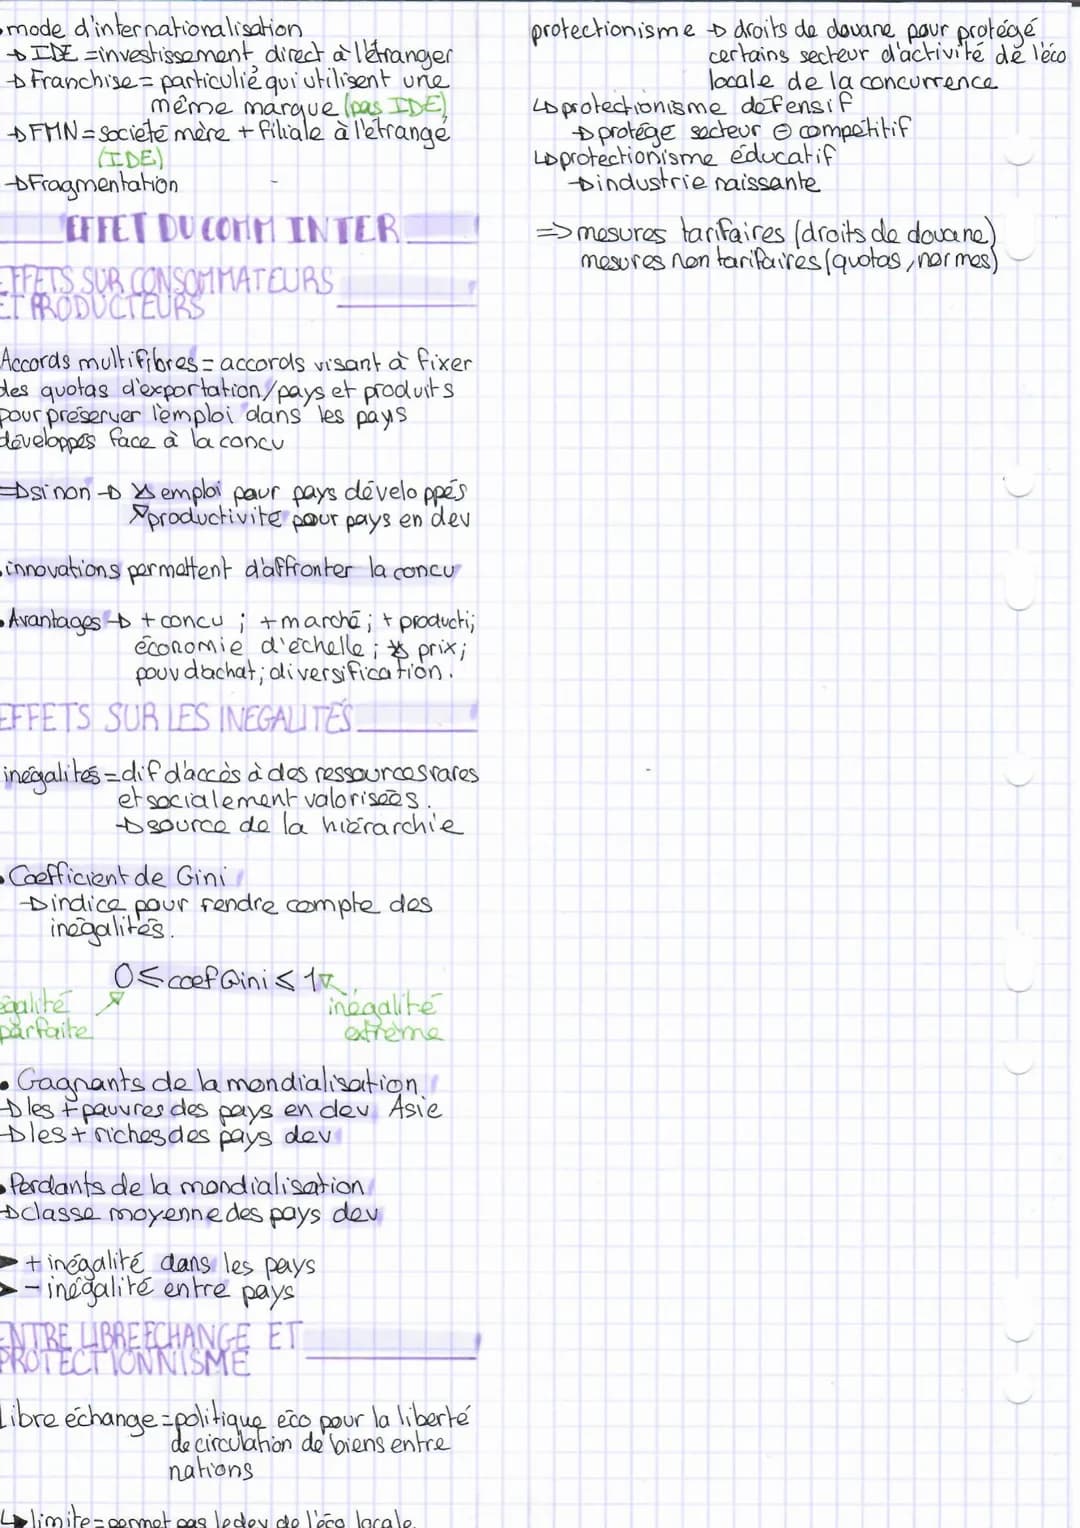 mode d'internationalisation
→ IDE = investissement direct à l'étranger
→ Franchise = particulié qui utilisent une
même marque (pas IDE)
→ FMN = société mère + filiale à l'étrangé
(IDE)
→ Fragmentation
EFFET DU COMM INTER
EFFETS SUR CONSOMMATEURS
ET PRODUCTEURS
Accords multifibres = accords visant à fixer
des quotas d'exportation/pays et produits
pour préserver l'emploi dans les pays
développés face à la concu
⇒ sinon → ↘ emploi pour pays développés
↗ productivité pour pays en dev
• innovations permettent d'affronter la concu
• Avantages → + concu ; + marché ; + producti ;
économie d'échelle ; ↘ prix ;
pouv d'achat ; diversification.
EFFETS SUR LES INEGALITÉS
inégalités = dif d'accès à des ressources rares
et socialement valorisées.
→ source de la hiérarchie
• Coefficient de Gini
→ indice pour rendre compte des
inégalités.
0 ≤ coef Gini ≤ 1
égalité
parfaite
inégalité
extrême
• Gagnants de la mondialisation
→ les + pauvres des pays en dev Asie
→ les + riches des pays dev
• Perdants de la mondialisation
→ classe moyenne des pays dev
➤ + inégalité dans les pays
➤ - inégalité entre pays
ENTRE LIBRE ECHANGE ET
PROTECTIONNISME
Libre échange = politique éco pour la liberté
de circulation de biens entre
nations
↳ limite = permet pas le dev de l'éco locale.
protectionisme → droits de douane pour protégé
certains secteur d'activité de l'éco
locale de la concurrence
↳ protectionisme défensif
→ protége secteur ⊖ compétitif
↳ protectionisme éducatif
→ industrie naissante
⇒ mesures tarifaires (droits de douane)
mesures non tarifaires (quotas, normes)